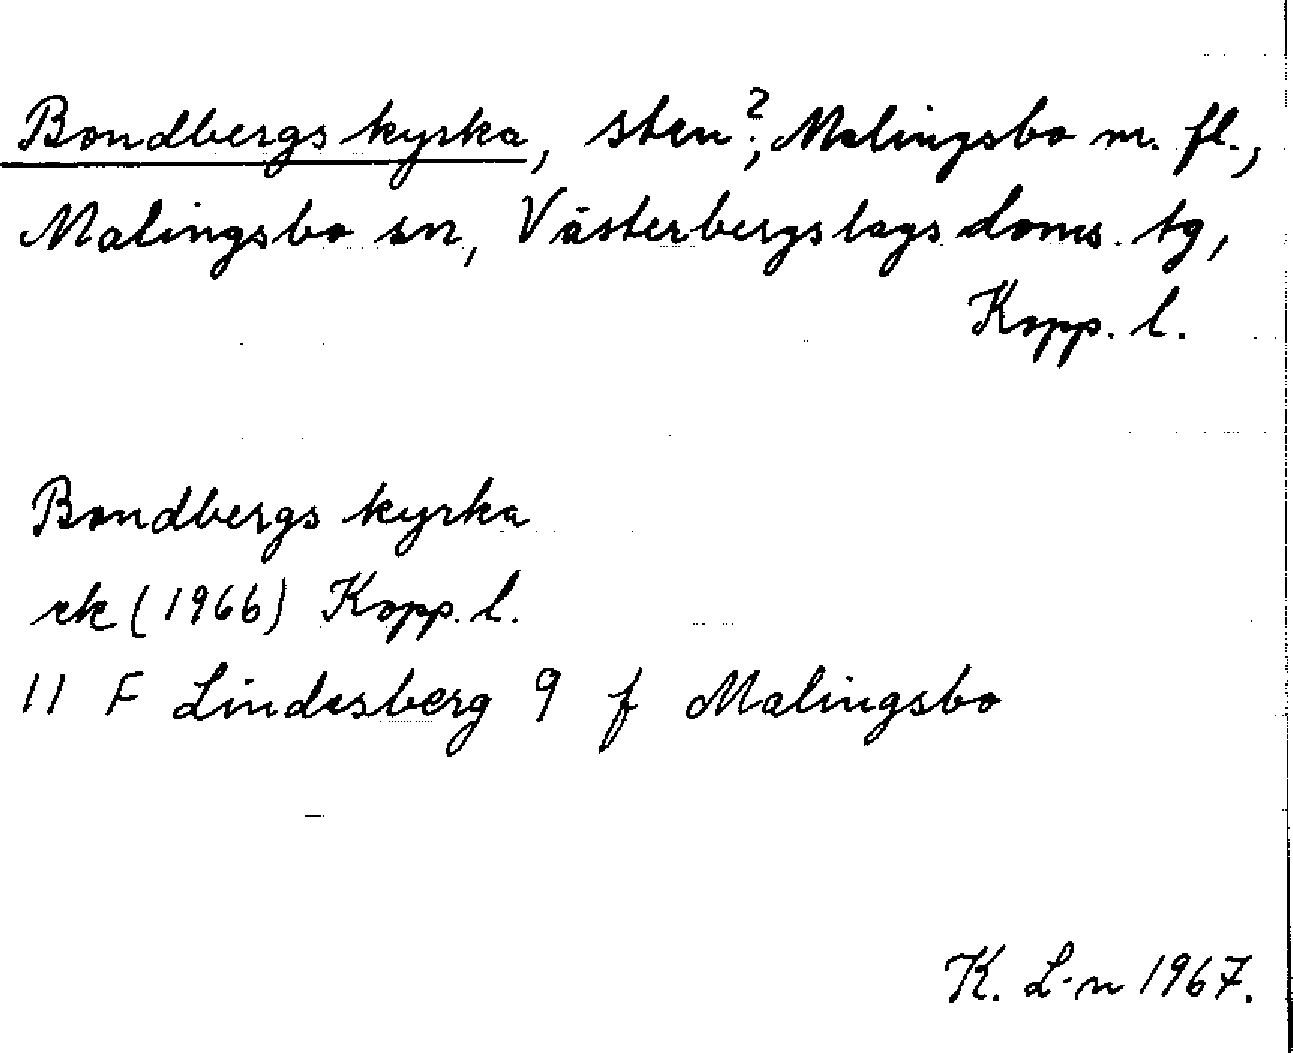 Bondbergs kyrka, sten?, Malingsbo m. fl.,
Malingsbo sn, Västerbergslags doms. tg,
Kopp. l.
Bondbergs kyrka
ek (1966) Kopp. l.
11 F Lindesberg 9 f Malingsbo
K. L-n 1967.